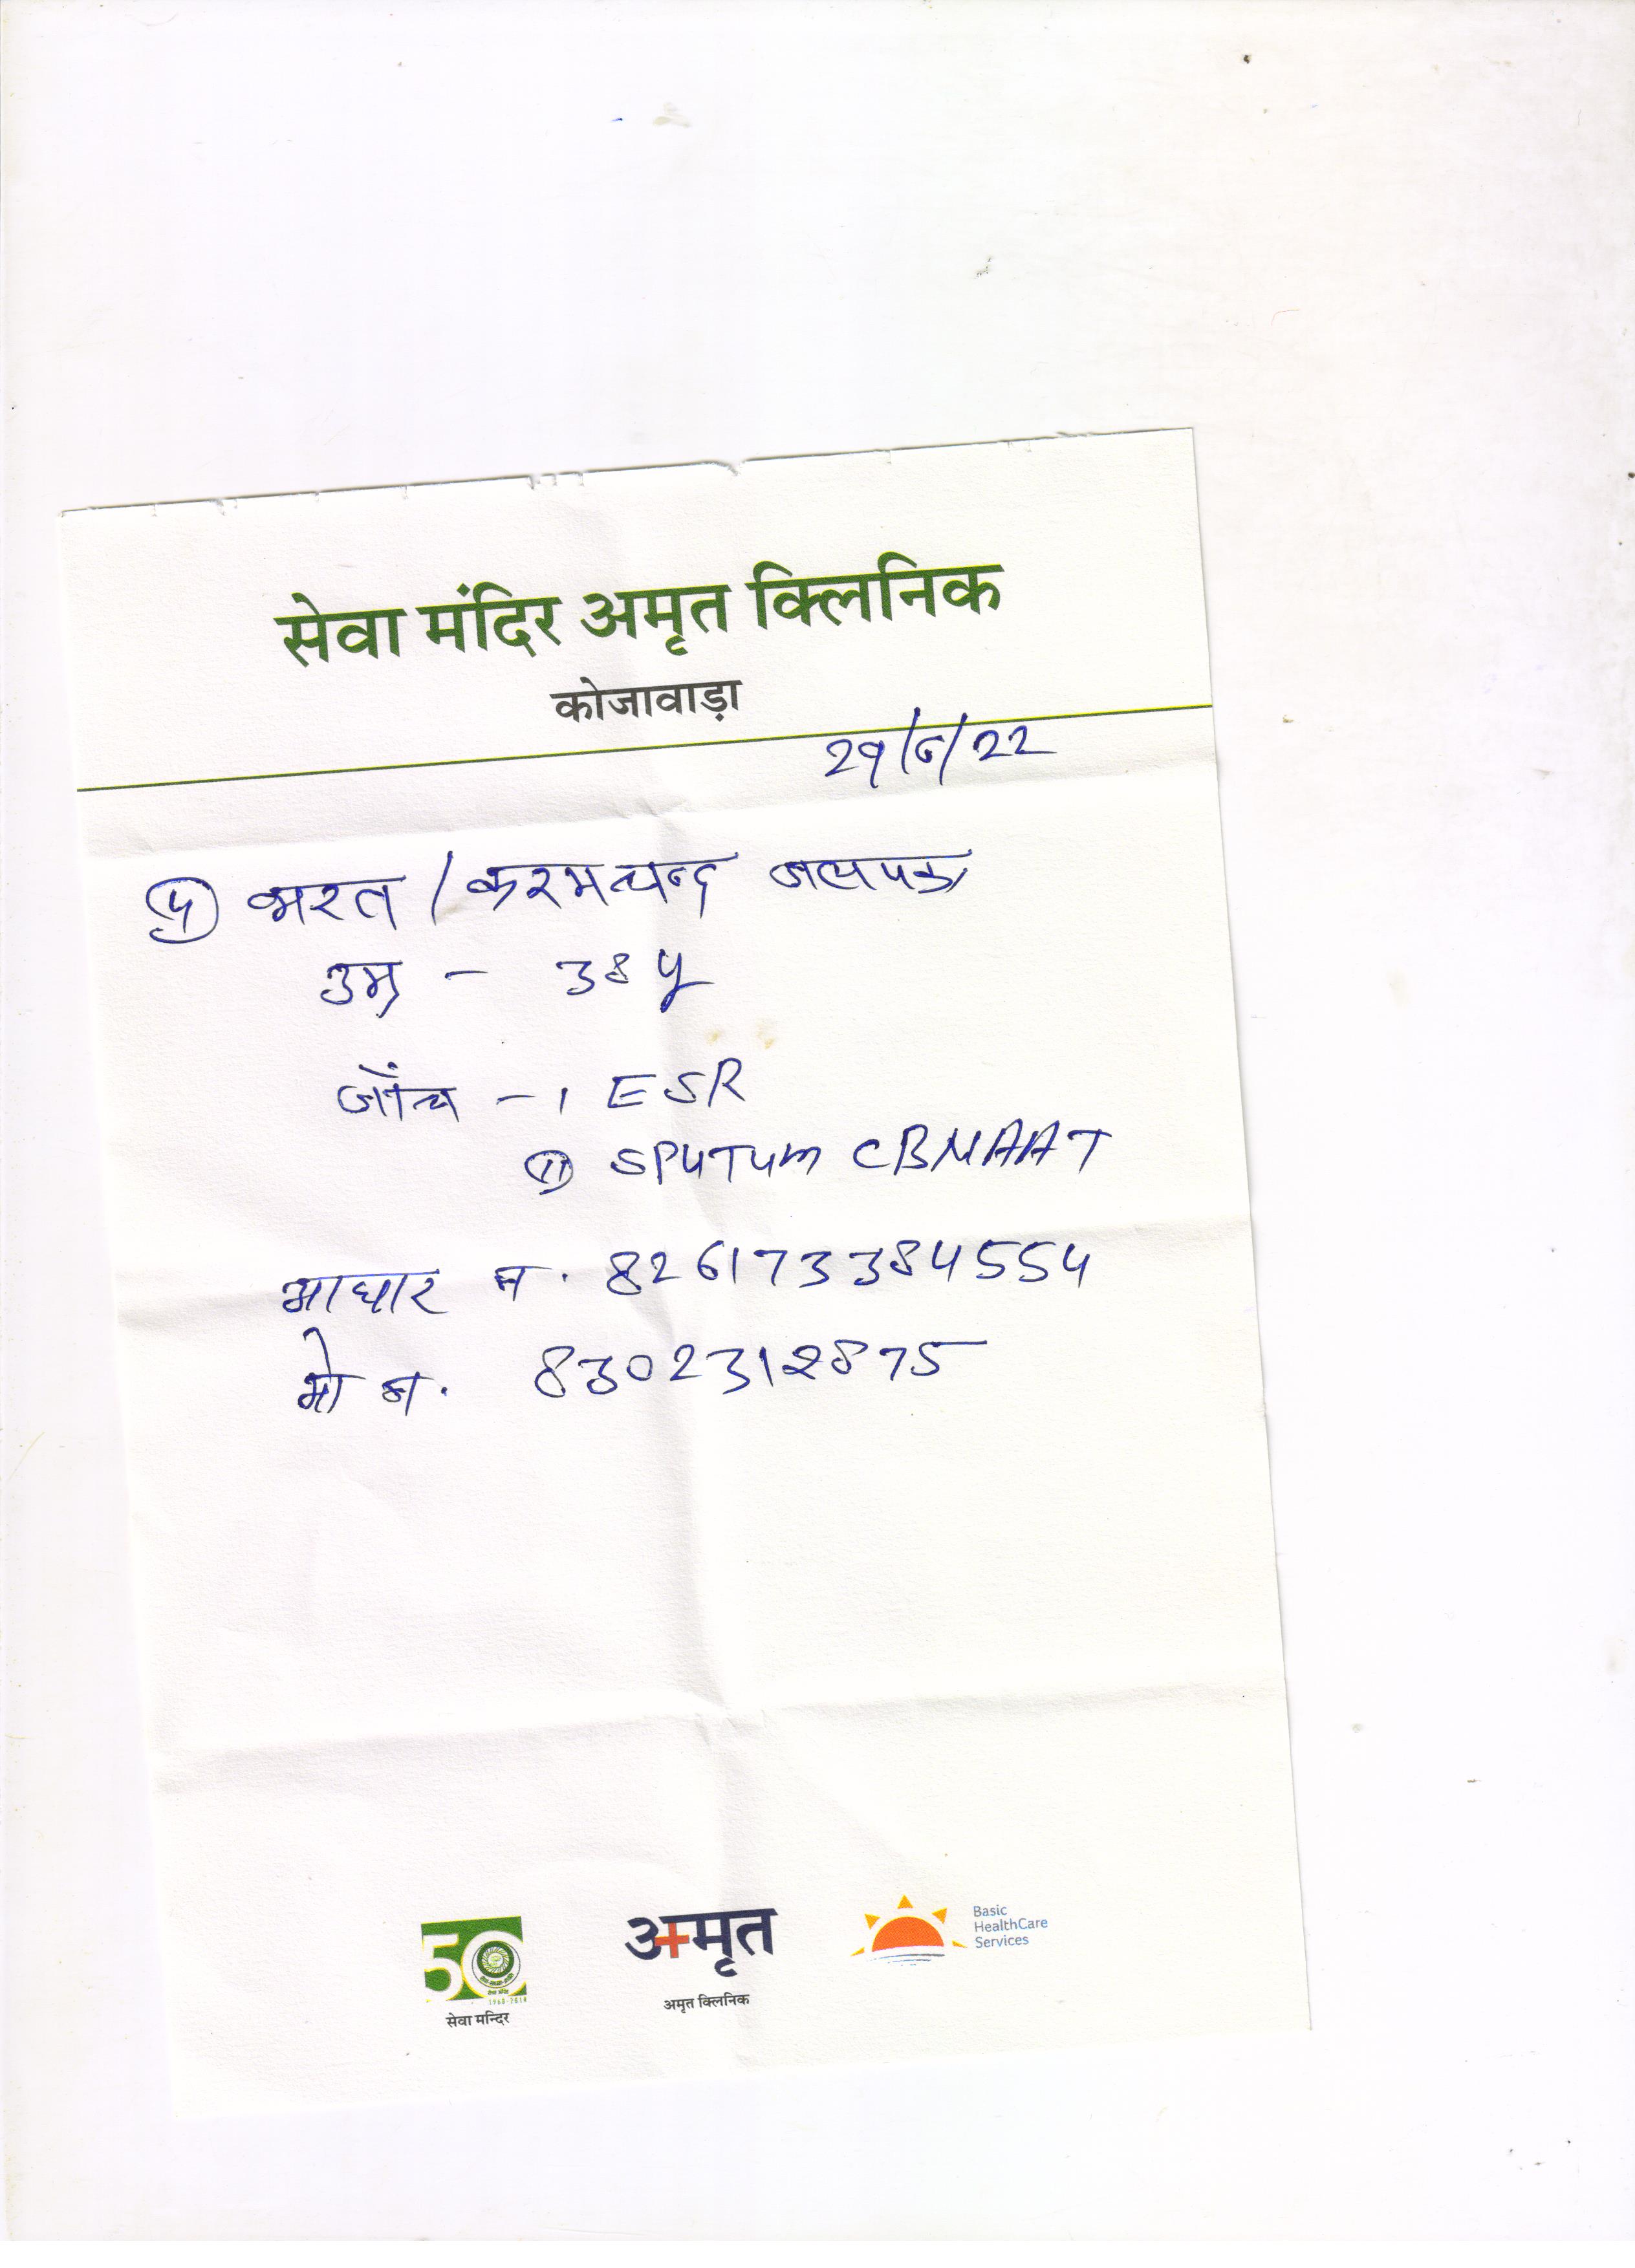 सेवा मंदिर अमृत क्लिनिक
कोजावाड़ा
29/6/22
५ भरत / करमचन्द
उम्र - 38 पू
जाँच - I ESR
II SPUTUM CBNAAT
आधार न. 826173384554
मो न. 8302312875
50
1968-2018
सेवा मन्दिर
अमृत
अमृत क्लिनिक
Basic
HealthCare
Services